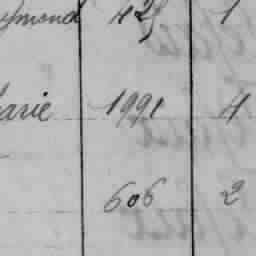 ymond 425 1
arie 1991 4
606 2